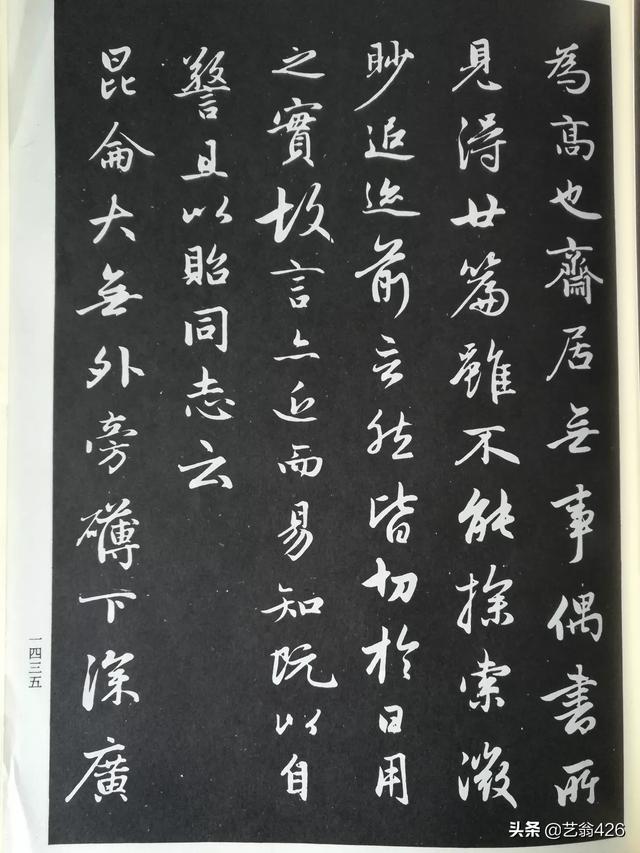 為高也齋居無事偶書所
見得廿篇雖不能探索微
眇追迹前言然皆切於日用
之實故言亦近而易知既以自
警且以貽同志云
昆侖大無外旁礴下深廣
一四三五
头条@艺翁426